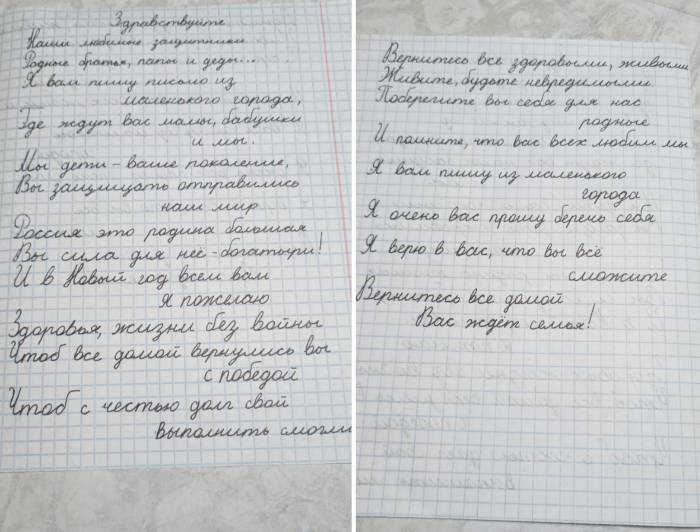 Здравствуйте
Наши любимые защитники
Родные братья, папы и деды...
Я вам пишу письмо из
маленького города,
Где ждут вас мамы, бабушки
и мы.
Мы дети - ваше поколение,
Вы защищать отправились
наш мир
Россия это родина большая
Вы сила для неё - богатыри!
И в Новый год всем вам
я пожелаю
Здоровья, жизни без войны
Чтоб все домой вернулись вы
с победой
Чтоб с честью долг свой
выполнить смогли
Вернитесь все здоровыми, живыми
Живите, будьте невредимыми
Поберегите вы себя для нас
родные
И помните, что вас всех любим мы
Я вам пишу из маленького
города
Я очень вас прошу беречь себя
Я верю в вас, что вы всё
сможите
Вернитесь все домой
Вас ждёт семья!